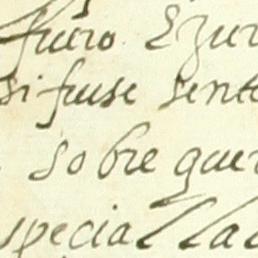 furo Ezur
si fuese sente
sobre que
special lla